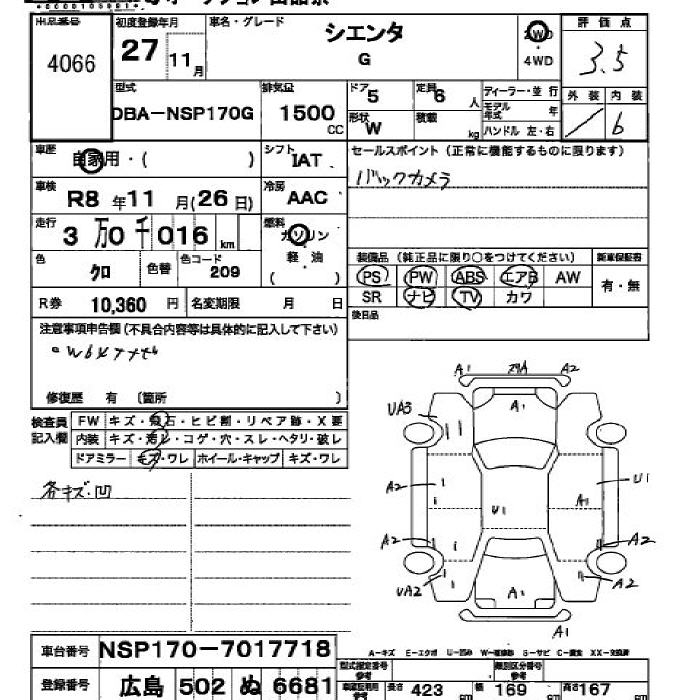 出品番号 初度登録年月 車名・グレード シエンタ 2WD 評価点
4066 27 11月 G 4WD 3.5
型式 排気量 ドア 5 定員 6人 ディーラー・並行 外装 内装
DBA-NSP170G 1500cc 形状 W 積載 kg モデル年式 年 6
ハンドル 左・右
車歴 自家用・( ) シフト IAT セールスポイント (正常に機能するものに限ります)
車検 R8年11月(26日) 冷房 AAC バックカメラ
走行 3万0千016km 燃料 ガソリン
軽・油
( )
色 クロ 色替 色コード 209 装備品 (純正品に限り○をつけてください) 新車保証書
PS PW ABS エアB AW 有・無
R券 10,360円 名変期限 月 日 SR ナビ TV カワ
注意事項申告欄 (不具合内容等は具体的に記入して下さい) 後日品
修復歴 有 〔箇所 〕
検査員 FW キズ・飛石・ヒビ割・リペア跡・X要
記入欄 内装 キズ・汚レ・コゲ・穴・スレ・ヘタリ・破レ
ドアミラー キズ・ワレ ホイール・キャップ キズ・ワレ
各キズ・凹
A1 A2
UA3 A1
A2 U1
U1 A1
A2 A2
UA2 A1 A2
A1
車台番号 NSP170-7017718
A-キズ E-エクボ U-凹み W-補修跡 S-サビ C-腐食 XX-交換済
登録番号 広島 502 ぬ 6681
型式指定番号 参考 類別区分番号 参考
長さ 423cm 幅 169cm 高さ 167cm